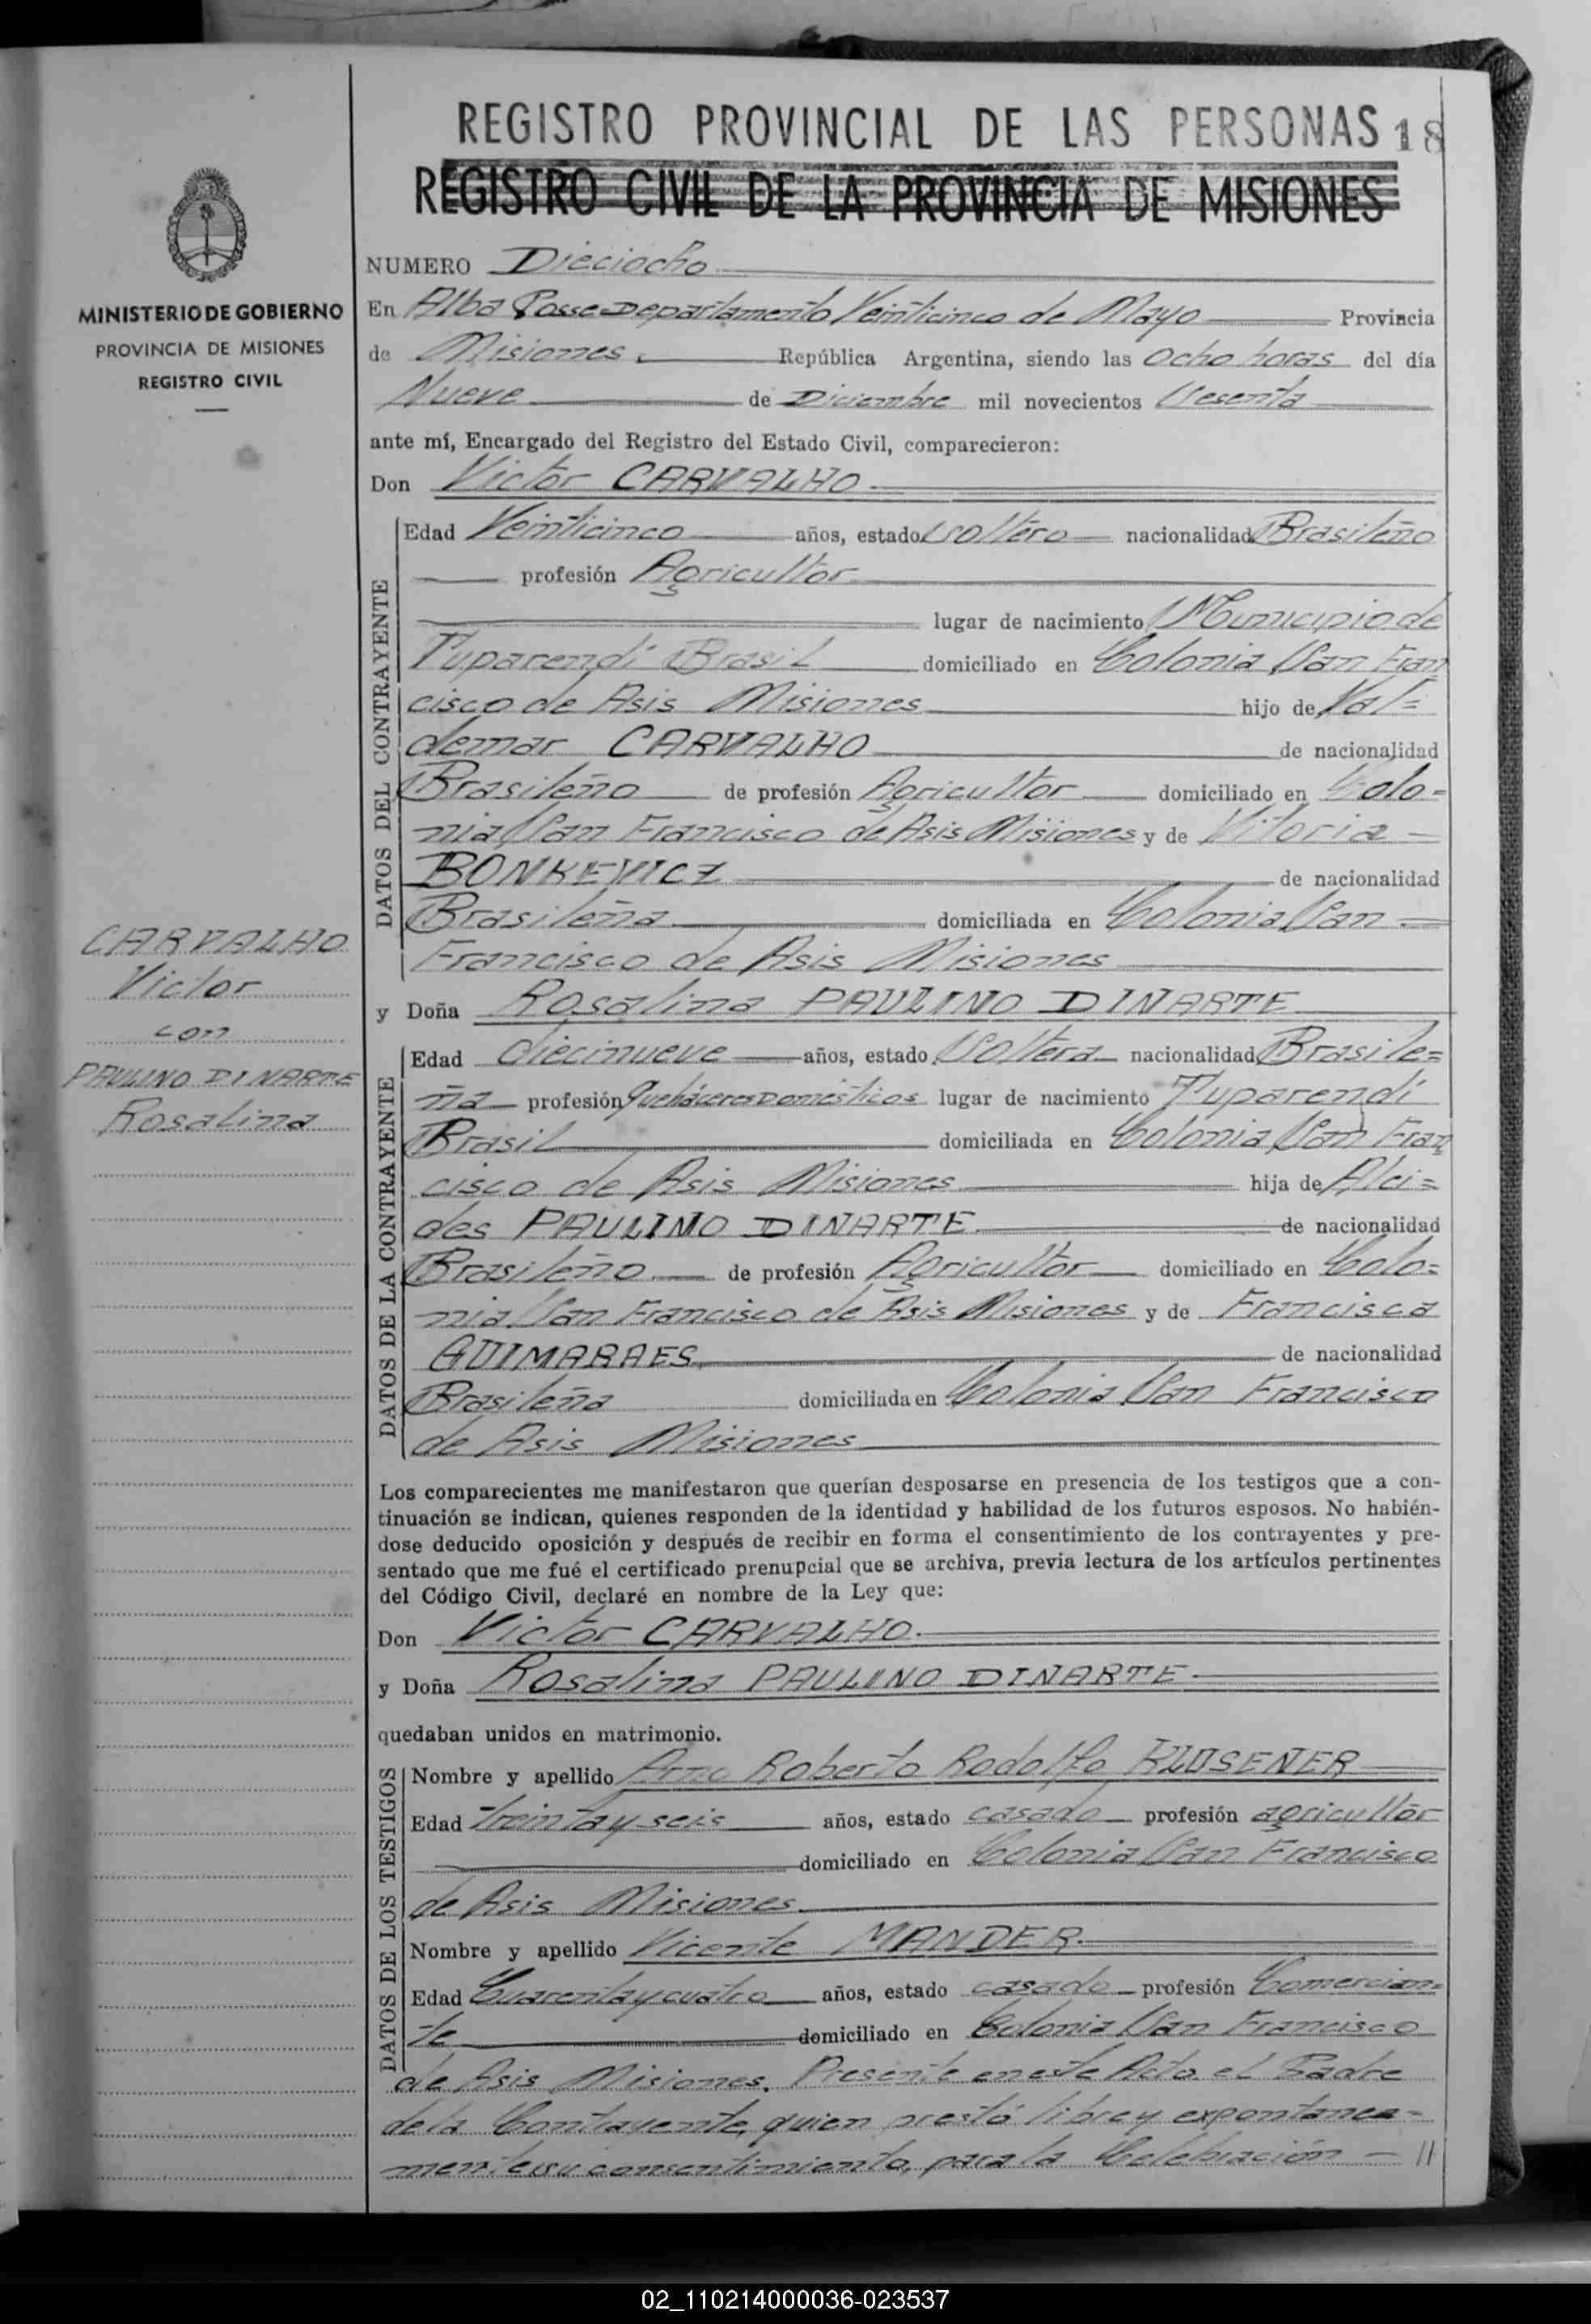 REGISTRO PROVINCIAL DE LAS PERSONAS 18
REGISTRO CIVIL DE LA PROVINCIA DE MISIONES
MINISTERIO DE GOBIERNO
PROVINCIA DE MISIONES
REGISTRO CIVIL
CARVALHO
Victor
con
PAULINO DINARTE
Rosalina
NUMERO Dieciocho
En Alba Posse Departamento Veinticinco de Mayo Provincia
de Misiones. República Argentina, siendo las Ocho horas del día
Nueve de Diciembre mil novecientos Sesenta
ante mí, Encargado del Registro del Estado Civil, comparecieron:
Don Victor CARVALHO.
DATOS DEL CONTRAYENTE
Edad Veinticinco años, estado Soltero nacionalidad Brasileño
profesión Agricultor
lugar de nacimiento Municipio de
Tuparendí Brasil domiciliado en Colonia San Fran
cisco de Asis Misiones hijo de Val=
demar CARVALHO de nacionalidad
Brasileño de profesión Agricultor domiciliado en Colo=
nia San Francisco de Asis Misiones y de Vitoria
BONKEVICZ de nacionalidad
Brasileña domiciliada en Colonia San
Francisco de Asis Misiones
y Doña Rosalina PAULINO DINARTE
DATOS DE LA CONTRAYENTE
Edad diecinueve años, estado Soltera nacionalidad Brasile=
ña profesión Quehaceres Domésticos lugar de nacimiento Tuparendí
Brasil domiciliada en Colonia San Fran
cisco de Asis Misiones hija de Alci=
des PAULINO DINARTE de nacionalidad
Brasileño de profesión Agricultor domiciliado en Colo=
nia San Francisco de Asis Misiones y de Francisca
GUIMARAES, de nacionalidad
Brasileña domiciliada en Colonia San Francisco
de Asis Misiones
Los comparecientes me manifestaron que querían desposarse en presencia de los testigos que a con-
tinuación se indican, quienes responden de la identidad y habilidad de los futuros esposos. No habién-
dose deducido oposición y después de recibir en forma el consentimiento de los contrayentes y pre-
sentado que me fué el certificado prenupcial que se archiva, previa lectura de los artículos pertinentes
del Código Civil, declaré en nombre de la Ley que:
Don Victor CARVALHO.
y Doña Rosalina PAULINO DINARTE
quedaban unidos en matrimonio.
DATOS DE LOS TESTIGOS
Nombre y apellido Roberto Rodolfo KLOSENER
Edad Treinta y seis años, estado casado profesión agricultor
domiciliado en Colonia San Francisco
de Asis Misiones
Nombre y apellido Vicente MANDER.
Edad Cuarenta y cuatro años, estado casado profesión Comercian=
te domiciliado en Colonia San Francisco
de Asis Misiones. Presente en este Acto el Padre
de la Contrayente, quien prestó libre y expontanea=
mente su consentimiento, para la Celebración - //
02_110214000036-023537